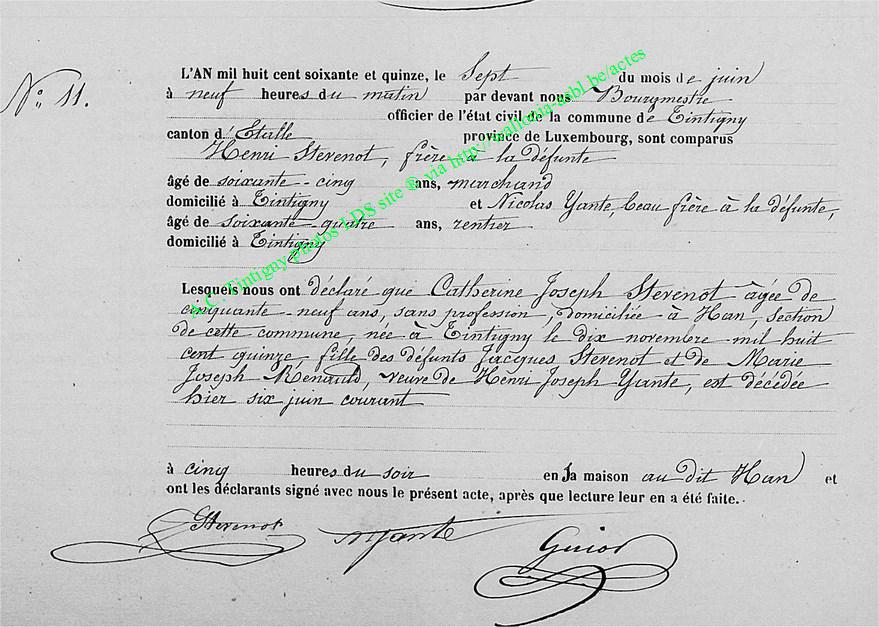 N° 11.
L'AN mil huit cent soixante et quinze, le Sept du mois de juin
à neuf heures du matin par devant nous Bourgmestre
officier de l'état civil de la commune de Tintigny
canton d'Etalle province de Luxembourg, sont comparus
Henri Stevenot, frère à la défunte
âgé de soixante-cinq ans, marchand
domicilié à Tintigny et Nicolas Yante, beau frère à la défunte,
âgé de soixante-quatre ans, rentier
domicilié à Tintigny
Lesquels nous ont déclaré que Catherine Joseph Stevenot âgée de
cinquante-neuf ans, sans profession, domiciliée à Han, section
de cette commune, née à Tintigny le dix novembre mil huit
cent quinze, fille des défunts Jacques Stevenot et de Marie
Joseph Renauld, veuve de Henri Joseph Yante, est décédée
hier six juin courant
à cinq heures du soir en sa maison au dit Han et
ont les déclarants signé avec nous le présent acte, après que lecture leur en a été faite.
Stevenot NYante Guiot
A.C. Tintigny photos LDS site ® via http://mallonia-asbl.be/actes